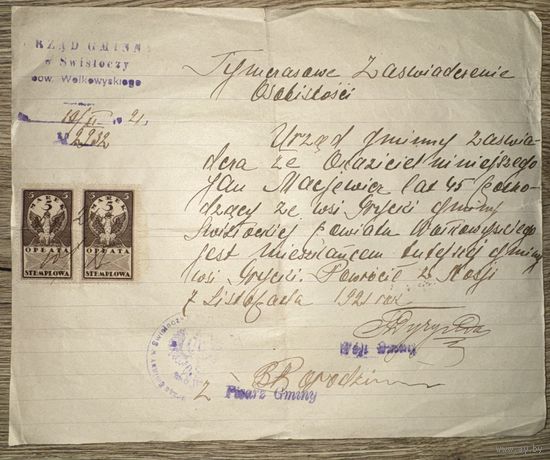 URZĄD GMINNY
w Swisłoczy
pow. Wołkowyskiego
10/XI 21.
№ 2232
Tymczasowe Zaświadczenie
Osobistości
Urząd gminny zaświa-
dcza że Okaziciel niniejszego
Jan Maciewicz lat 45 pocho-
dzący ze wsi Grycki gminy
Świsłockiej Powiatu Wołkowyskiego
jest mieszkańcem tutejszej gminy
wsi Grycki. Powrócił z Rosji
7 Listopada 1921 rok
5 MAREK 5
OPŁATA
STEMPLOWA
5 MAREK 5
OPŁATA
STEMPLOWA
Wójt Gminy
Pisarz Gminy
www.ay.by